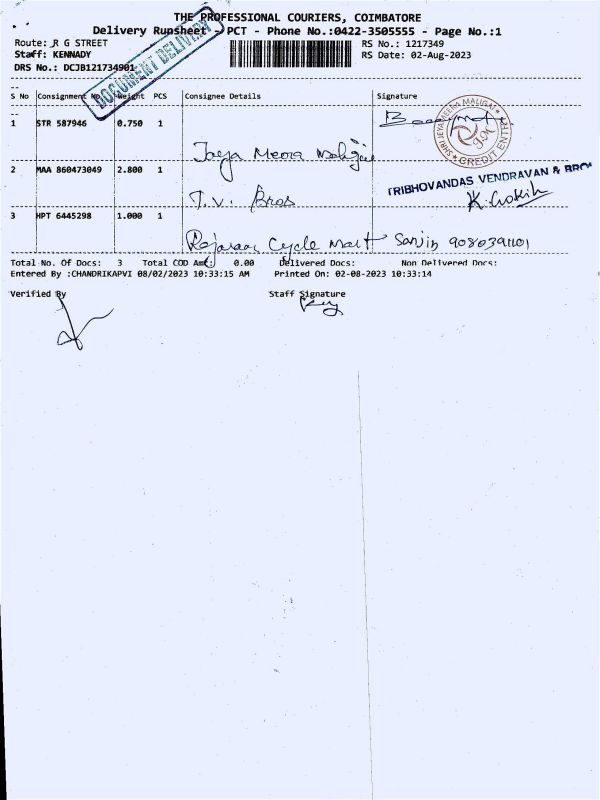 THE PROFESSIONAL COURIERS, COIMBATORE
Delivery Runsheet - PCT - Phone No.:0422-3505555 - Page No.:1
Route: R G STREET
RS No.: 1217349
Staff: KENNADY
RS Date: 02-Aug-2023
DRS No.: DCJB121734901
DOCUMENT DELIVERY
S No Consignment No. Weight PCS Consignee Details Signature
1 STR 587946 0.750 1
Jaya Meera Maligai
SHRI JEYA MEENA MALIGAI CREDIT ENTRY
2 MAA 860473049 2.800 1
T.V. Bros
TRIBHOVANDAS VENDRAVAN & BRO
3 HPT 6445298 1.000 1
Cycle Mart 9080391101
Total No. Of Docs: 3 Total COD Amt: 0.00 Delivered Docs: Non Delivered Docs:
Entered By :CHANDRIKAPVI 08/02/2023 10:33:15 AM Printed On: 02-08-2023 10:33:14
Verified By Staff Signature